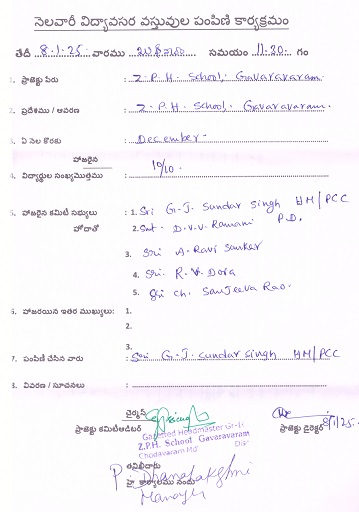 నెలవారీ విద్యావసర వస్తువుల పంపిణి కార్యక్రమం
తేదీ 8.1.25. వారము బుధవారం సమయం 11.20. గం
1. ప్రాజెక్టు పేరు : Z.P.H. School. Gavaravaram.
2. ప్రదేశము / ఆవరణ : Z.P.H. School. Gavaravaram.
3. ఏ నెల కొరకు : December-
హాజరైన
4. విద్యార్థుల సంఖ్యమొత్తము : 10/10.
5. హాజరైన కమిటీ సభ్యులు : 1. Sri G.J. Sundar Singh HM/PCC
హోదాతో 2. Smt. D.V.V. Ramani P.D.
3. Sri A. Ravi Sankar
4. Sri. R.V. Dora
5. Sri Ch. Sanjeeva Rao.
6. హాజరయిన ఇతర ముఖ్యులు: 1.
2.
3.
7. పంపిణి చేసిన వారు : Sri G.J. Sundar Singh HM/PCC
8. వివరణ / సూచనలు :
చైర్మన్
ప్రాజెక్టు కమిటీఆడిటర్ ప్రాజెక్టు డైరెక్టర్ 8/1/25.
Gazetted Headmaster Gr-II
Z.P.H. School Gavaravaram
Chodavaram Md Dist
తనిఖీదారు
P. Dhanalakshmi
హై కార్యాలము నందు
Manager